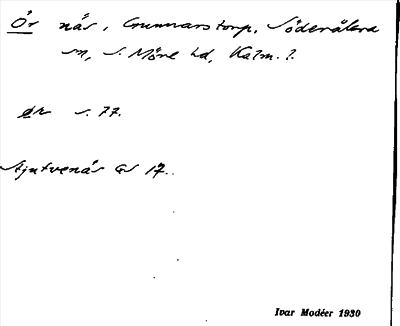 Ör näs, Gunnarstorp, Söderåkra
sn, S. Möre hd, Kalm. l.
s. 77.
Stjutvenäs GS 17.
Ivar Modéer 1930